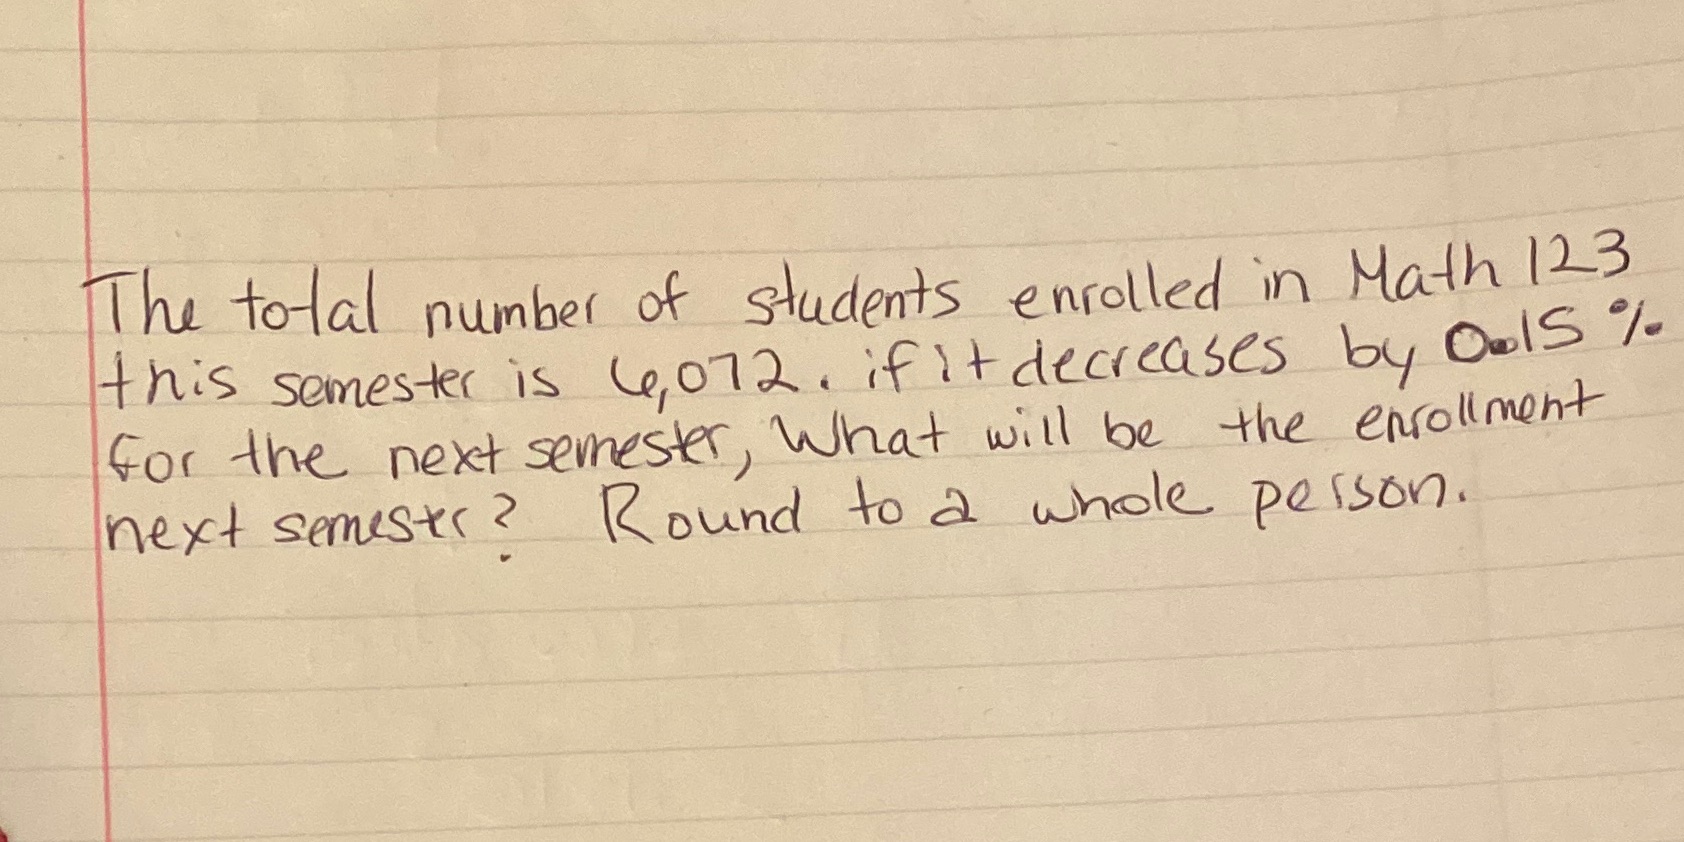 The total number of students enrolled in Math 123
this semester is 6,072. if it decreases by 0.15%
for the next semester, What will be the enrollment
next semester? Round to a whole person.